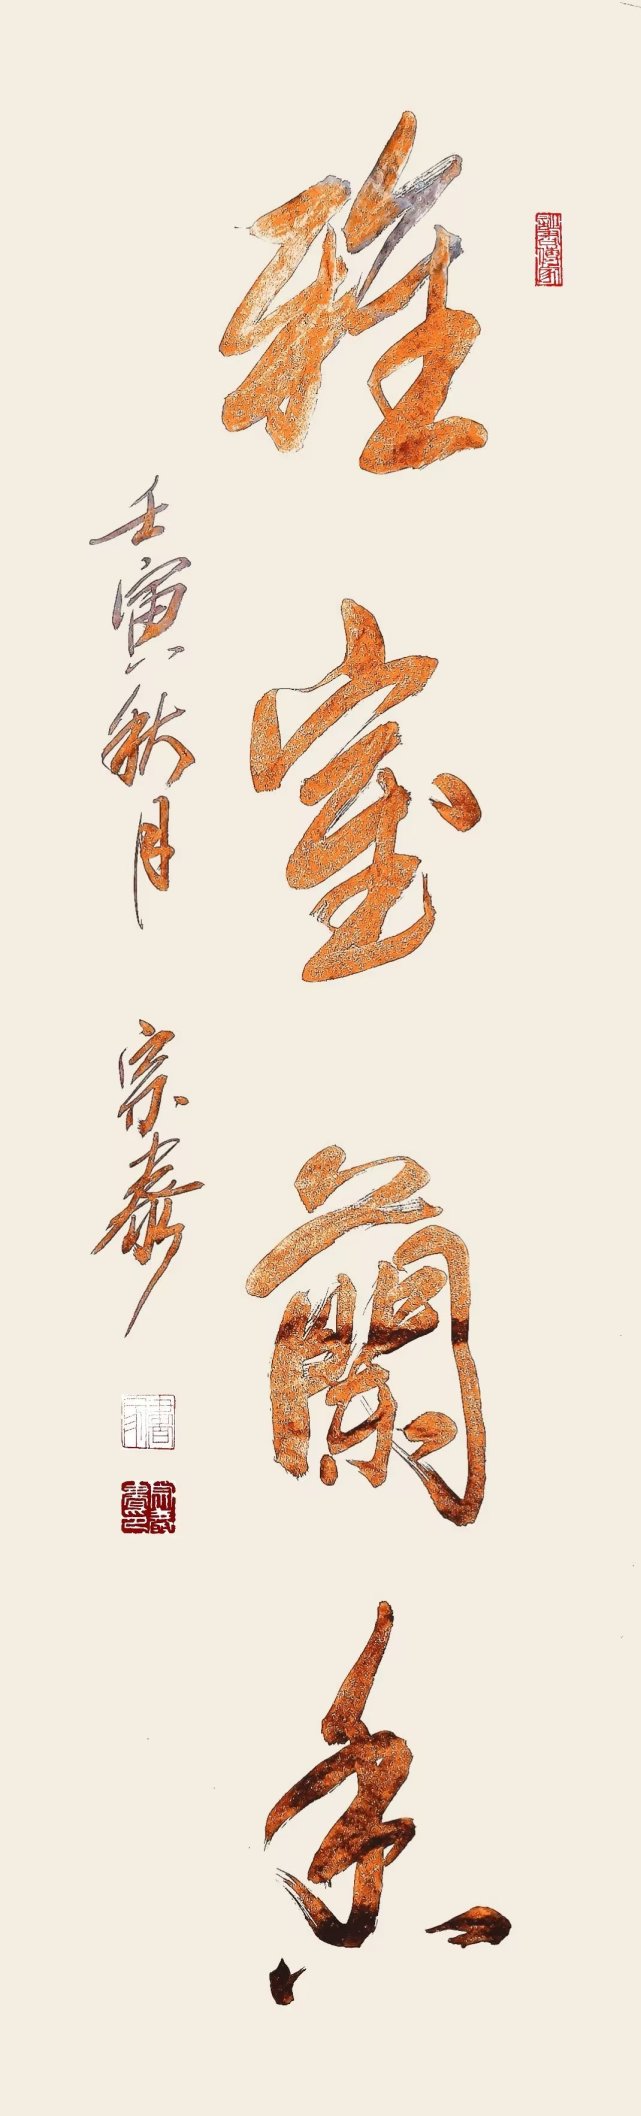 雅室蘭香
壬寅秋月 宗泰